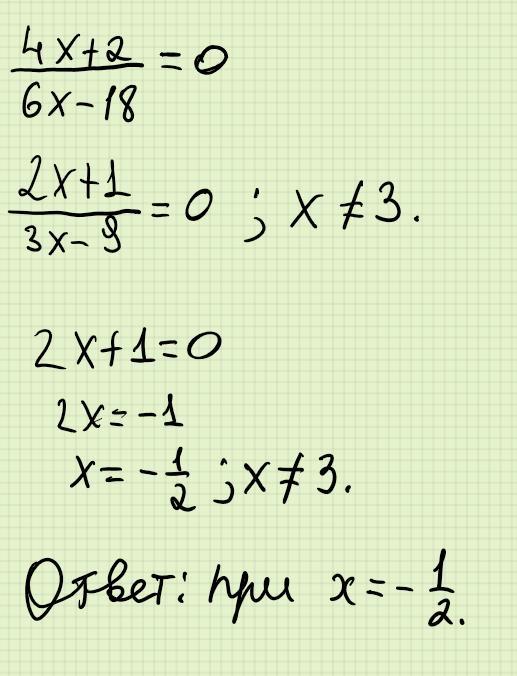 4x+2/6x-18 = 0
2x+1/3x-9 = 0 ; x ≠ 3.
2x+1=0
2x=-1
x=-1/2 ; x ≠ 3.
Ответ: при x=-1/2.